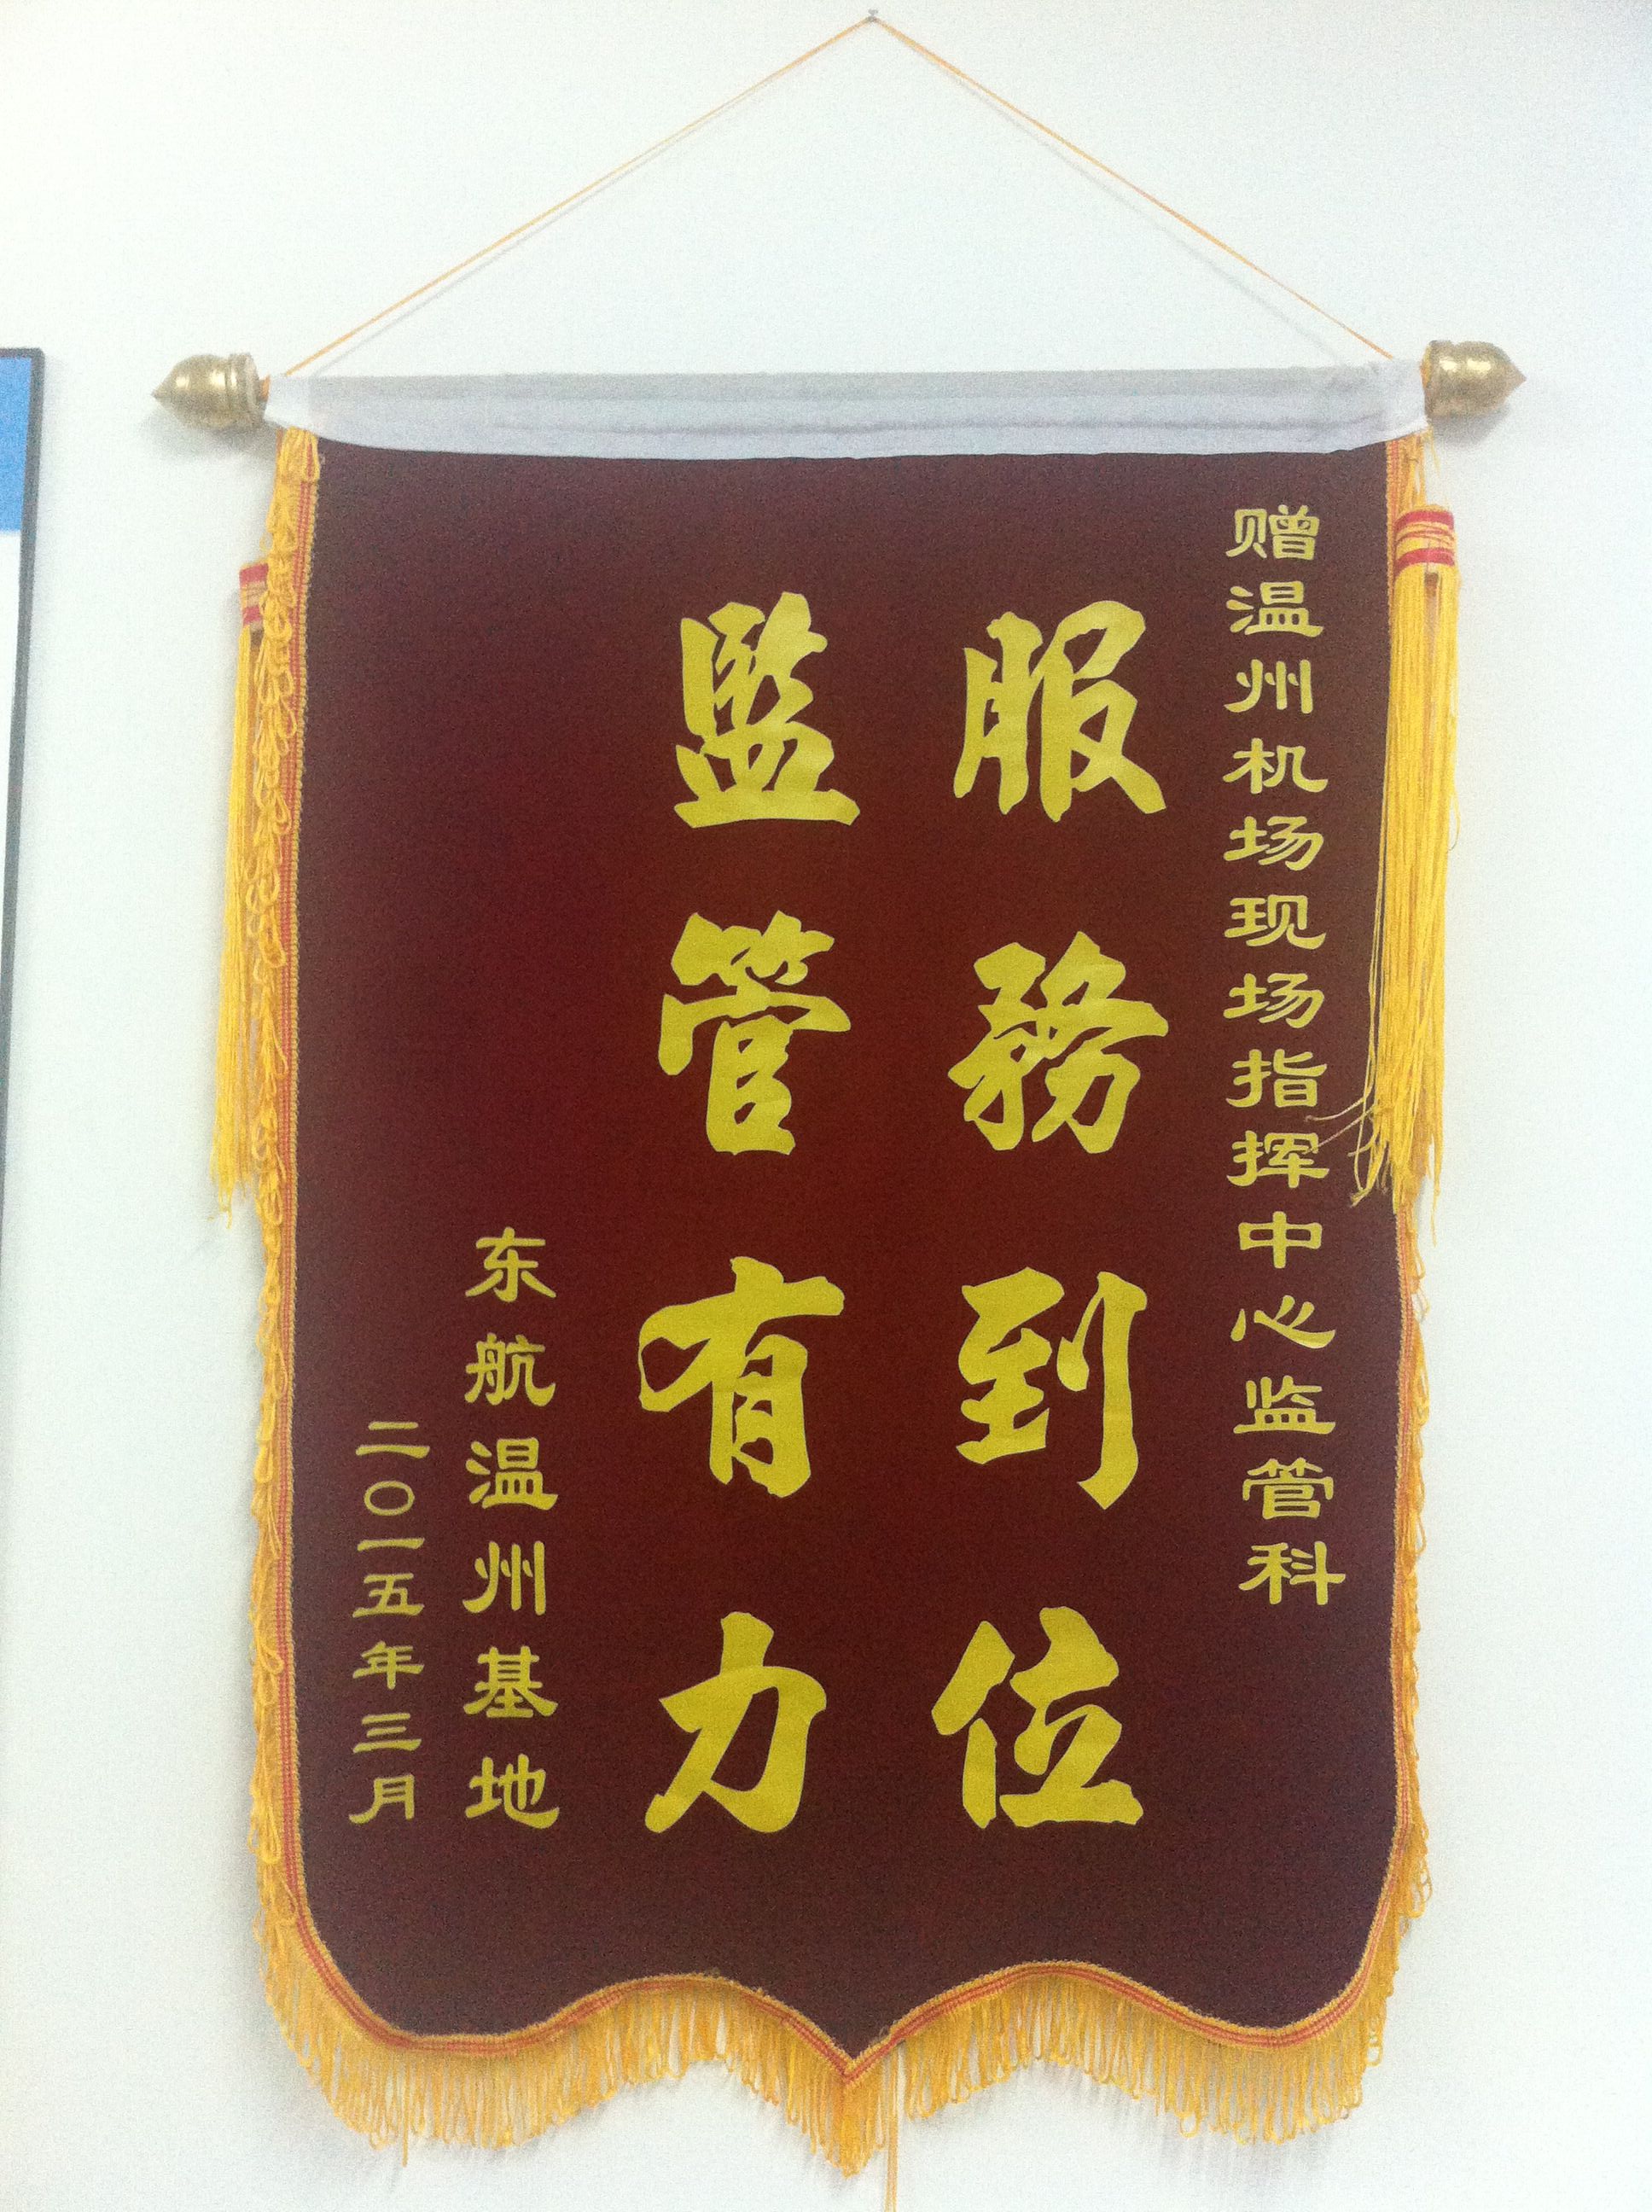 赠温州机场现场指挥中心监管科
服務到位
監管有力
东航温州基地
二〇一五年三月